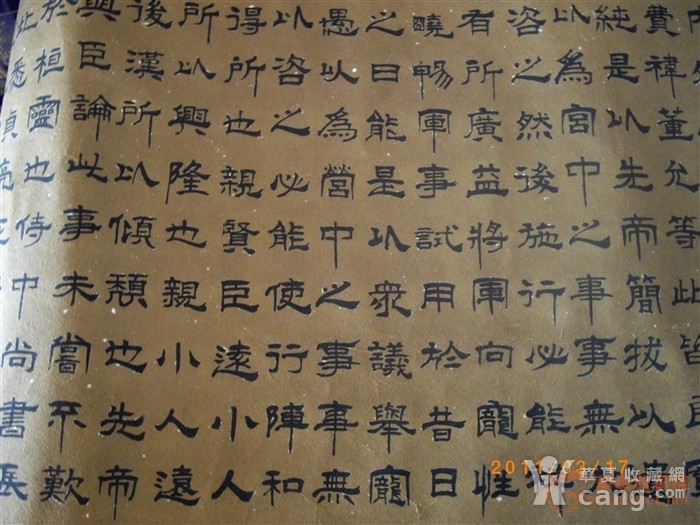 費禕董允等此皆
純是以先帝簡拔以遺
以為宮中之事事無大
咨之然後施行必能裨
有所廣益將軍向寵性
曉暢軍事試用於昔日
之曰能是以眾議舉寵
愚以為營中之事事無
以咨之必能使行陣和
得所也親賢臣遠小人
所以興隆也親小人遠
後漢所以傾頹也先帝
與臣論此事未嘗不歎
於桓靈也侍中尚書長
此悉貞亮死
2011/03/17
華夏收藏網
cang.com